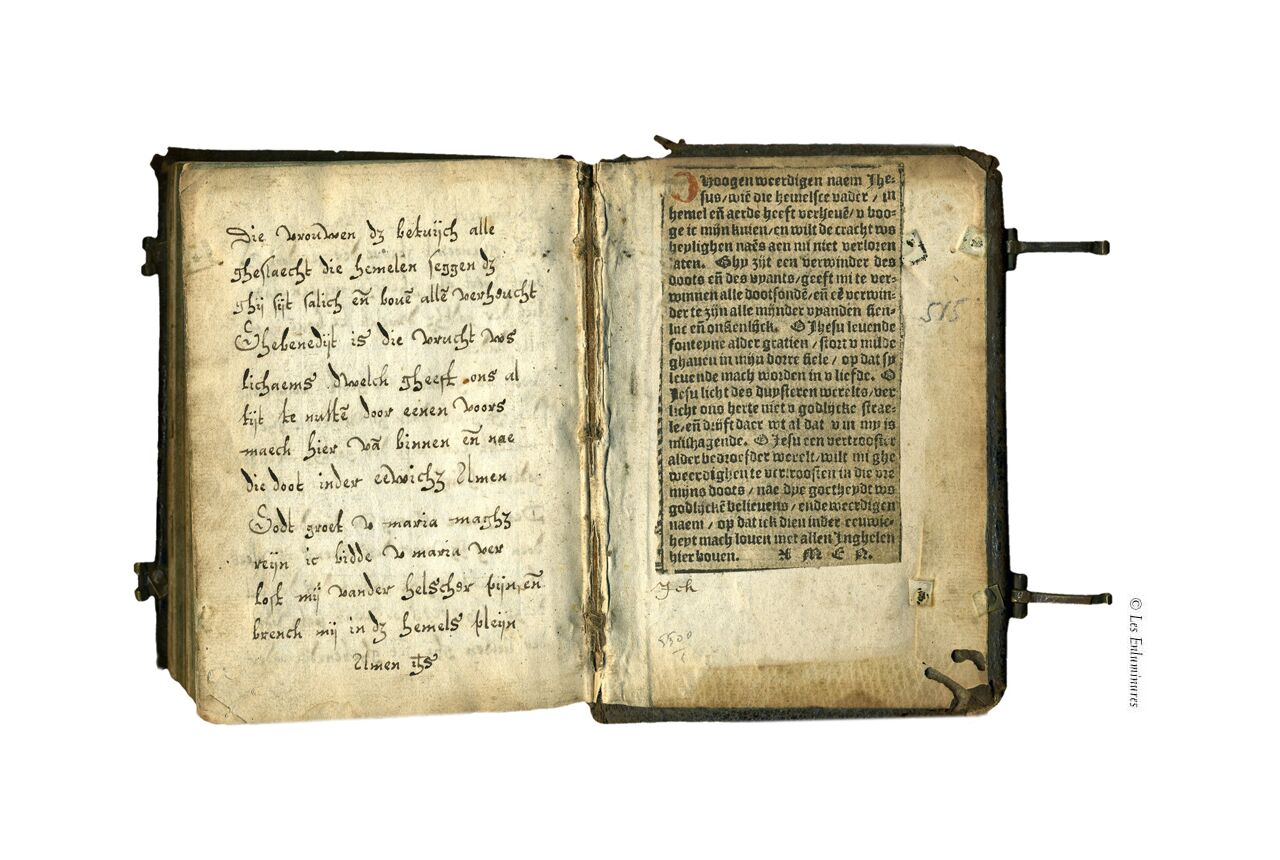 Die vrouwen dz betuijch alle
gheslaecht die hemelen seggen dz
ghij sijt salich eñ bouē allē verheucht
Ghebenedijt is die vrucht ws
lichaems dwelch gheeft ons al
tijt te nuttē door eenen voors
maech hier vā binnen eñ nae
die doot inder eewichz Amen
Godt groet v maria maghz
reijn ic bidde v maria ver
lost mij vander helscher pijn eñ
brench mij in dz hemels pleijn
Amen ihs
O hoogen weerdigen naem Jhe⸗
sus/wiē die hemelsce vader / in
hemel eñ aerde heeft verheuē/ v boo⸗
ge ic mijn knien/en wilt de cracht ws
heylighen naēs aen mi niet verloren
laten. Ghy zijt een verwinder des
doots eñ des vyants/geeft mi te ver⸗
winnen alle dootsondē/eñ eē verwin⸗
der te zijn alle mijnder vyanden sien⸗
lijc eñ onsienlijck. O Jhesu leuende
fonteyne alder gratien / stort v milde
ghauen in mijn dorre siele / op dat sy
leuende mach worden in v liefde. O
Jesu licht des duysteren werelts/ver
licht ons herte met v godlijcke strae⸗
le/eñ drijft daer wt al dat v in my is
mishagende. O Jesu een vertrooster
alder bedroefder werelt/wilt mi ghe
weerdighen te vertroosten in die vre
mijns doots / nae dye goetheydt ws
godlijckē belieuens / ende weerdigen
naem / op dat ick dien inder eeuwic⸗
heyt mach louen met allen Inghelen
hier bouen. A M E N.
515
Ick
5500
© Les Enluminures